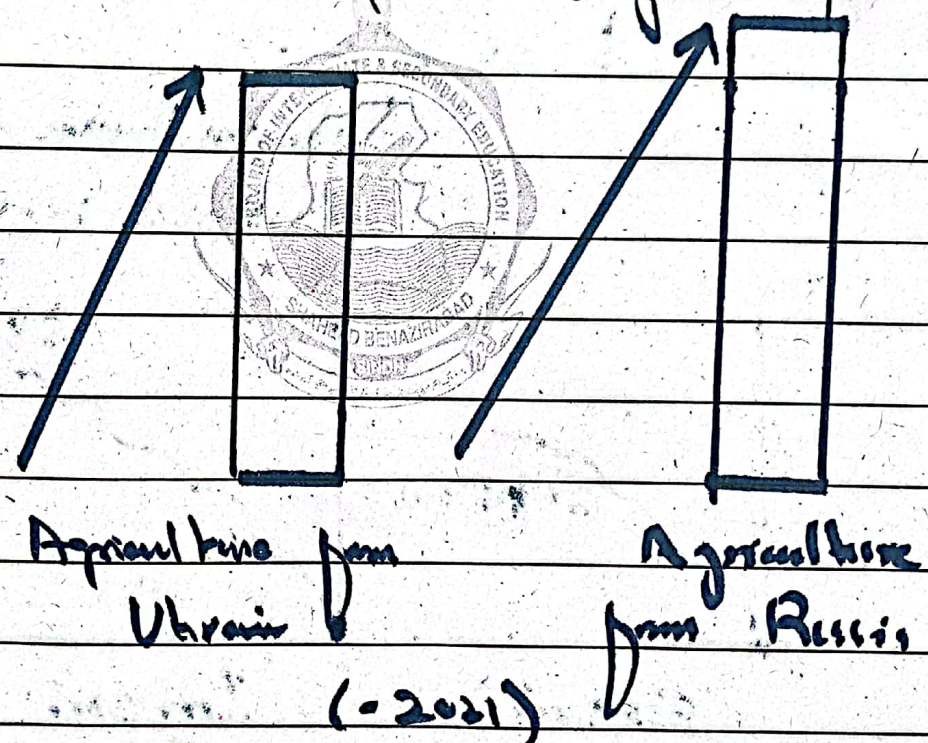 BOARD OF INTERMEDIATE & SECONDARY EDUCATION
SHAHEED BENAZIRABAD
Agriculture from
Agriculture
Ukrain
from Russia
(-2021)